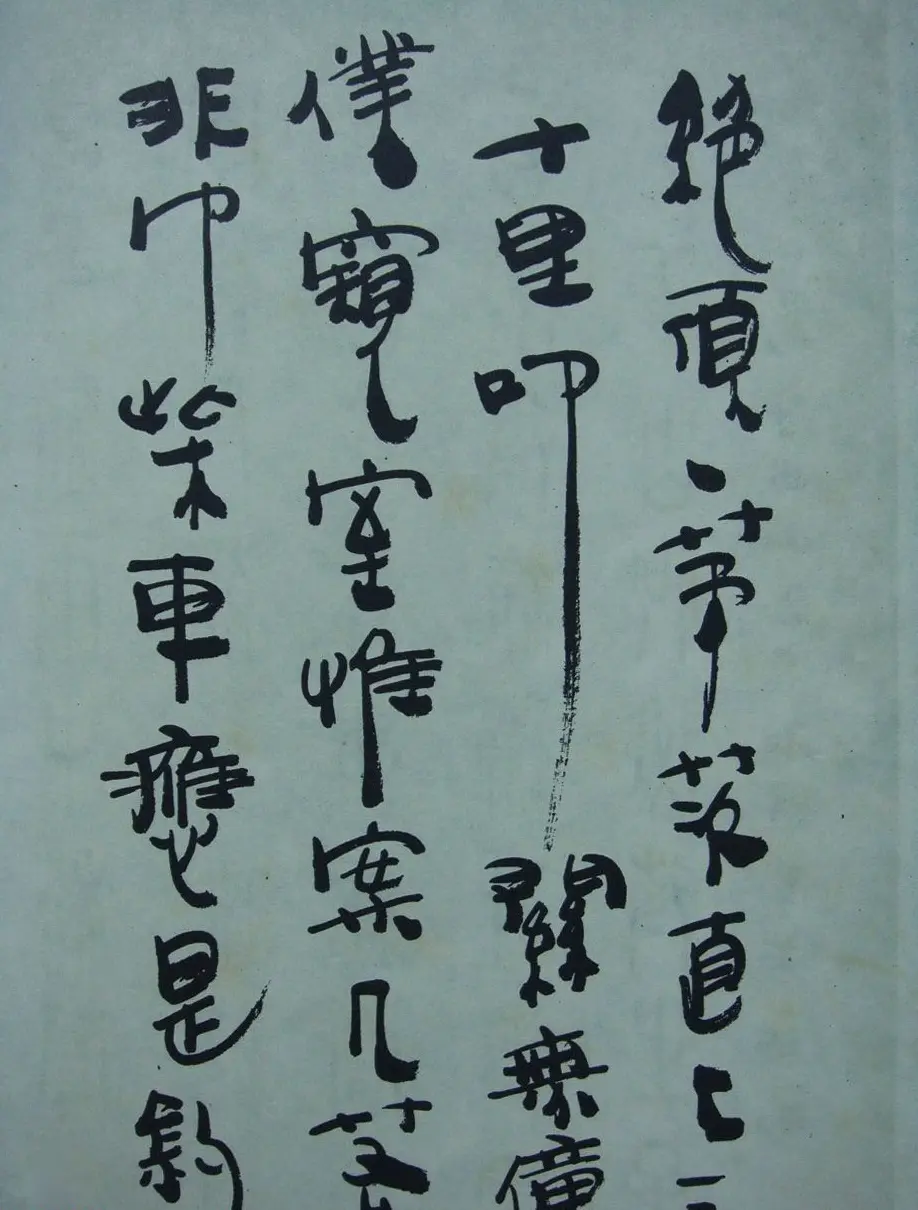 絕頂一茅茨直上三
十里叩關無僮
僕窺室惟案几若
非巾柴車應是釣